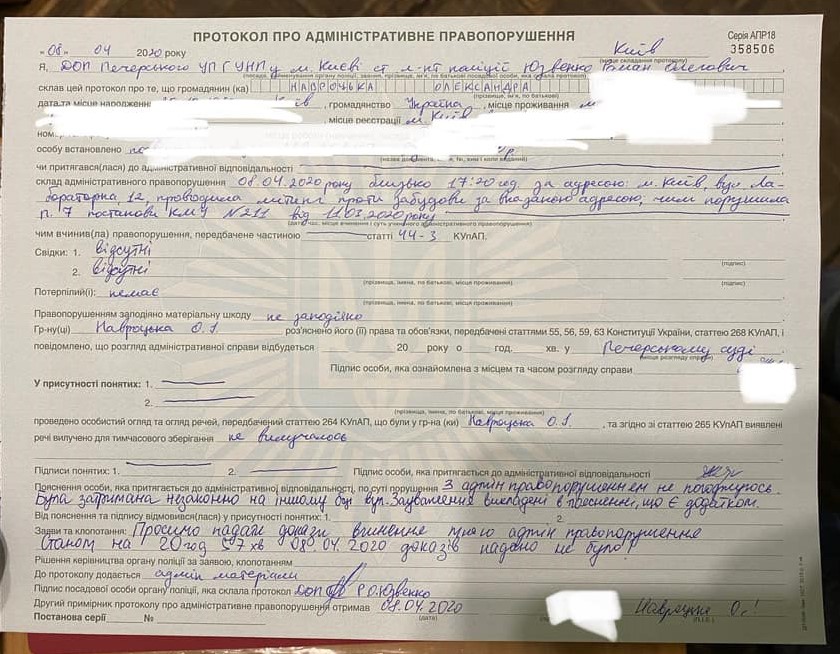 ПРОТОКОЛ ПРО АДМІНІСТРАТИВНЕ ПРАВОПОРУШЕННЯ
Серія АПР18
358506
Київ
"08" 04 2020 року
(місце складання протоколу)
Я, ДОП Печерського УП ГУНП у м. Києві ст л-нт поліції Юзвенко Роман Олегович
склав цей протокол про те, що громадянин (ка) НАВРОЦЬКА ОЛЕКСАНДРА
(прізвище, ім'я, по батькові)
дата та місце народження, громадянство Україна, місце проживання м.
, місце реєстрації м. Київ
особу встановлено
чи притягався(лася) до адміністративної відповідальності
склад адміністративного правопорушення 08.04.2020 року близько 17:20 год. за адресою: м. Київ, вул. Ла-
бораторна, 12, проводила мітинг проти забудови за вказаною адресою, чим порушила
п. 7 постанови КМУ №211 від 11.03.2020 року
(дата, час, місце вчинення і суть адміністративного правопорушення)
чим вчинив(ла) правопорушення, передбачене частиною статті 44-3 КУпАП.
Свідки: 1. відсутні
(підпис)
2. відсутні
(прізвища, імена, по батькові, місце проживання)
(підпис)
Потерпілий(і): немає
(прізвища, імена, по батькові, місце проживання)
Правопорушенням заподіяно матеріальну шкоду не заподіяно
Гр-ну(ці) Навроцька О.І. роз'яснено його (її) права та обов'язки, передбачені статтями 55, 56, 59, 63 Конституції України, статтею 268 КУпАП, і
повідомлено, що розгляд адміністративної справи відбудеться 20 року о год. хв. у Печерському суді
(місце розгляду справи)
Підпис особи, яка ознайомлена з місцем та часом розгляду справи
У присутності понятих: 1.
2.
(прізвища, імена, по батькові, місце проживання)
проведено особистий огляд та огляд речей, передбачений статтею 264 КУпАП, що були у гр-на (ки) Навроцька О.І., та згідно зі статтею 265 КУпАП виявлені
речі вилучено для тимчасового зберігання не вилучалось
Підписи понятих: 1. 2. Підпис особи, яка притягається до адміністративної відповідальності
Пояснення особи, яка притягається до адміністративної відповідальності, по суті порушення З адмін правопорушенням не погоджуюсь.
Була затримана незаконно на іншому боці вул. Зауваження викладені в поясненні, що є додатком.
Від пояснення та підпису відмовився(лась) у присутності понятих: 1. 2.
Заяви та клопотання: Просимо надати докази вчинення мною адмін правопорушення
Станом на 20 год 57 хв 08.04.2020 доказів надано не було!
Рішення керівництва органу поліції за заявою, клопотанням
До протоколу додається адмін матеріали
Підпис посадової особи органу поліції, яка склала протокол ДОП Р.О. Юзвенко
Другий примірник протоколу про адміністративне правопорушення отримав 08.04.2020 Навроцька О.І
(дата)
(П.І.Б.)
Постанова серії №